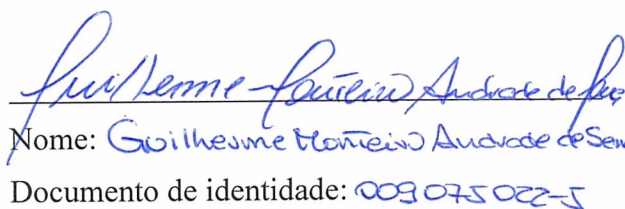 Guilherme Monteiro Andrade de
Nome: Guilherme Monteiro Andrade de Sen
Documento de identidade: 009075022-5